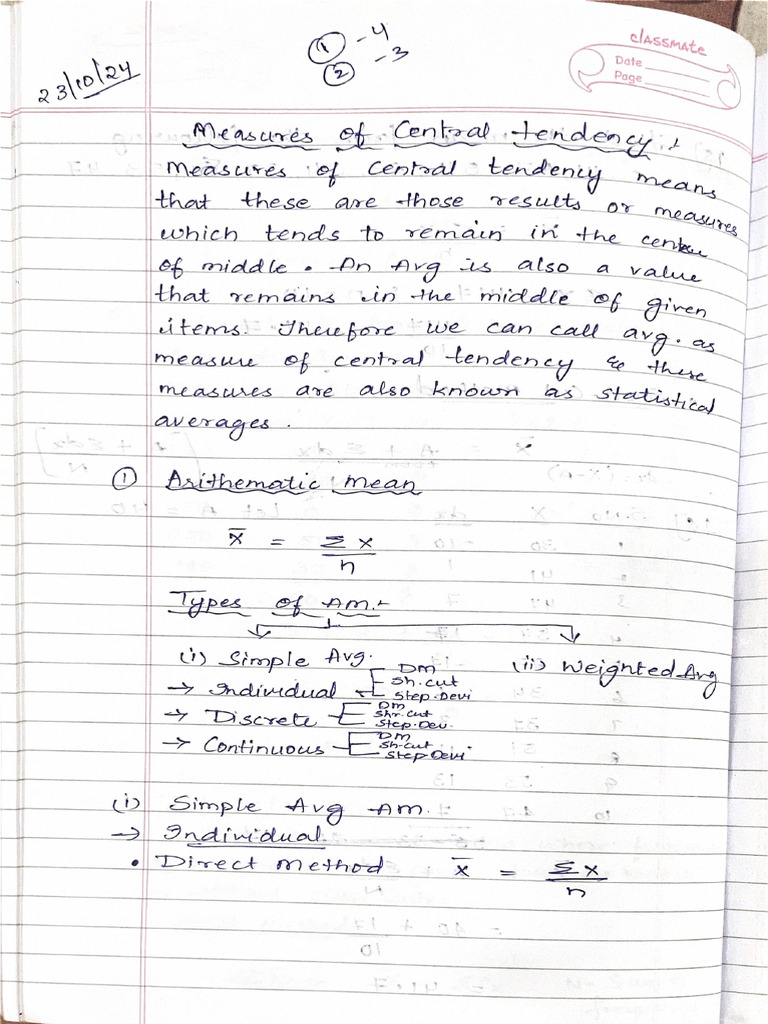 23/10/24
① - 4
② - 3
classmate
Date
Page
Measures of Central tendency :-
Measures of Central tendency means
that these are those results or measures
which tends to remain in the center
of middle. An Avg is also a value
that remains in the middle of given
items. Therefore we can call avg. as
measure of central tendency & these
measures are also known as statistical
averages.
① Arithematic mean
x̄ = Σx / n
Types of AM :-
(i) Simple Avg. (ii) Weighted Avg
→ Individual DM Sh.cut Step.Devi
→ Discrete DM Shr.cut Step.Dev.
→ Continuous DM Sh-cut Step.Devi
(i) Simple Avg AM.
→ Individual
• Direct method x̄ = Σx / n